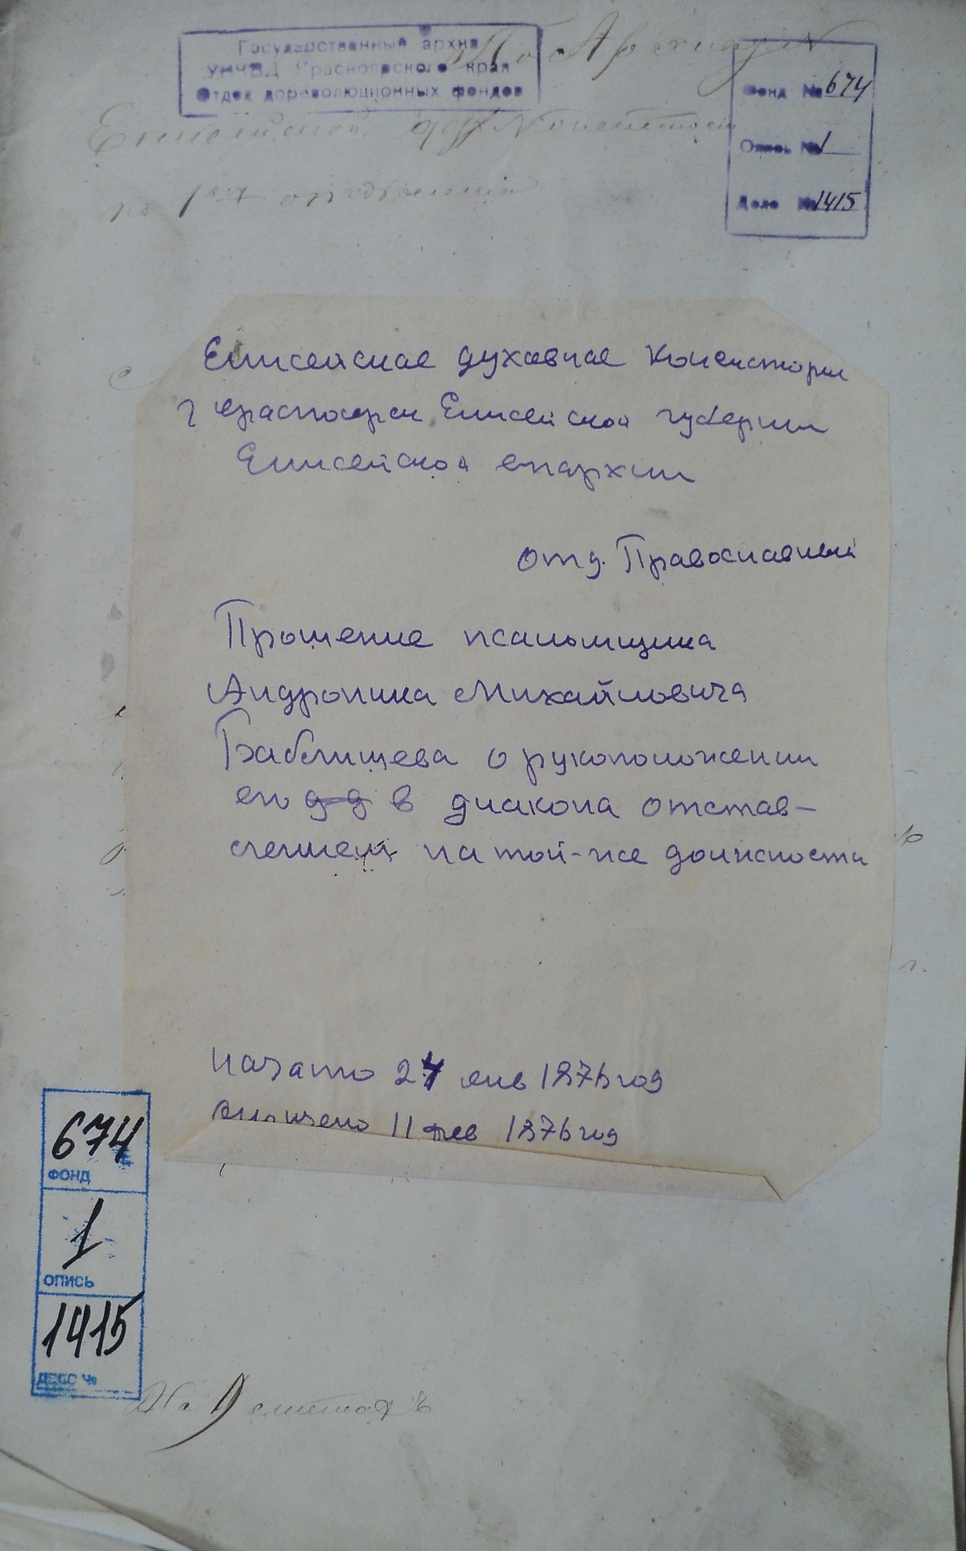 Государственный архив
УНКВД Красноярского края
Отдел дореволюционных фондов
По Архиву
Фонд № 674
Опись № 1
Дело № 1415
Енисейской дух. Консистории
по 1му отделению
Енисейское духовное Консистори
г Красноярск Енисейской губернии
Енисейской епархии
отд. Православный
Прошение псаломщика
Андроника Михайловича
Бабищева о рукоположении
его в диакона отстав-
лением на той-же должности
начато 24 янв 1876 год
окончено 11 фев 1876 год
674
ФОНД
1
ОПИСЬ
1415
ДЕЛО №
На листах